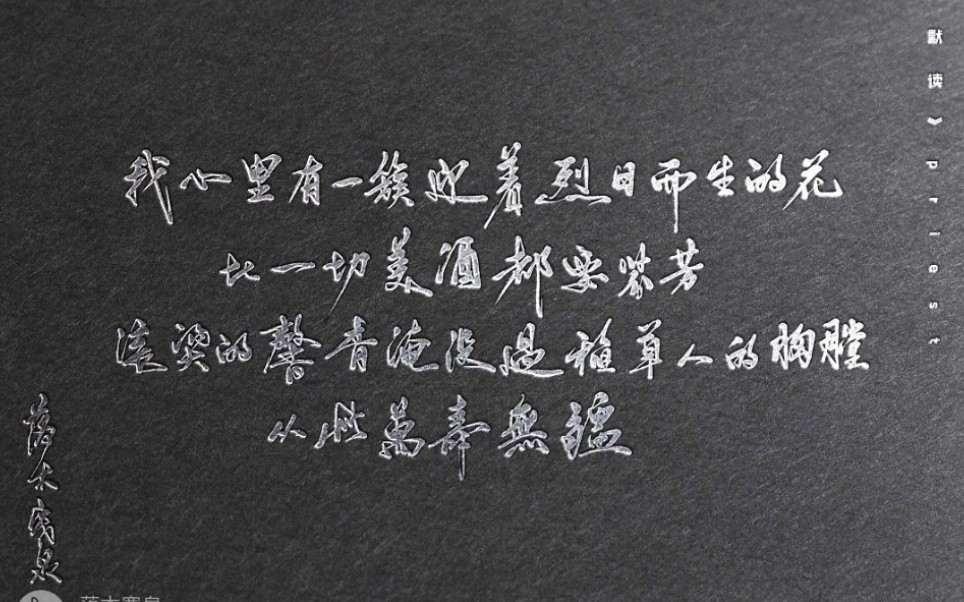 我心里有一簇迎着烈日而生的花
比一切美酒都要芬芳
滚烫的馨香淹没過稻草人的胸膛
从此萬壽無疆
默读》priest
落木寒泉
落木寒泉